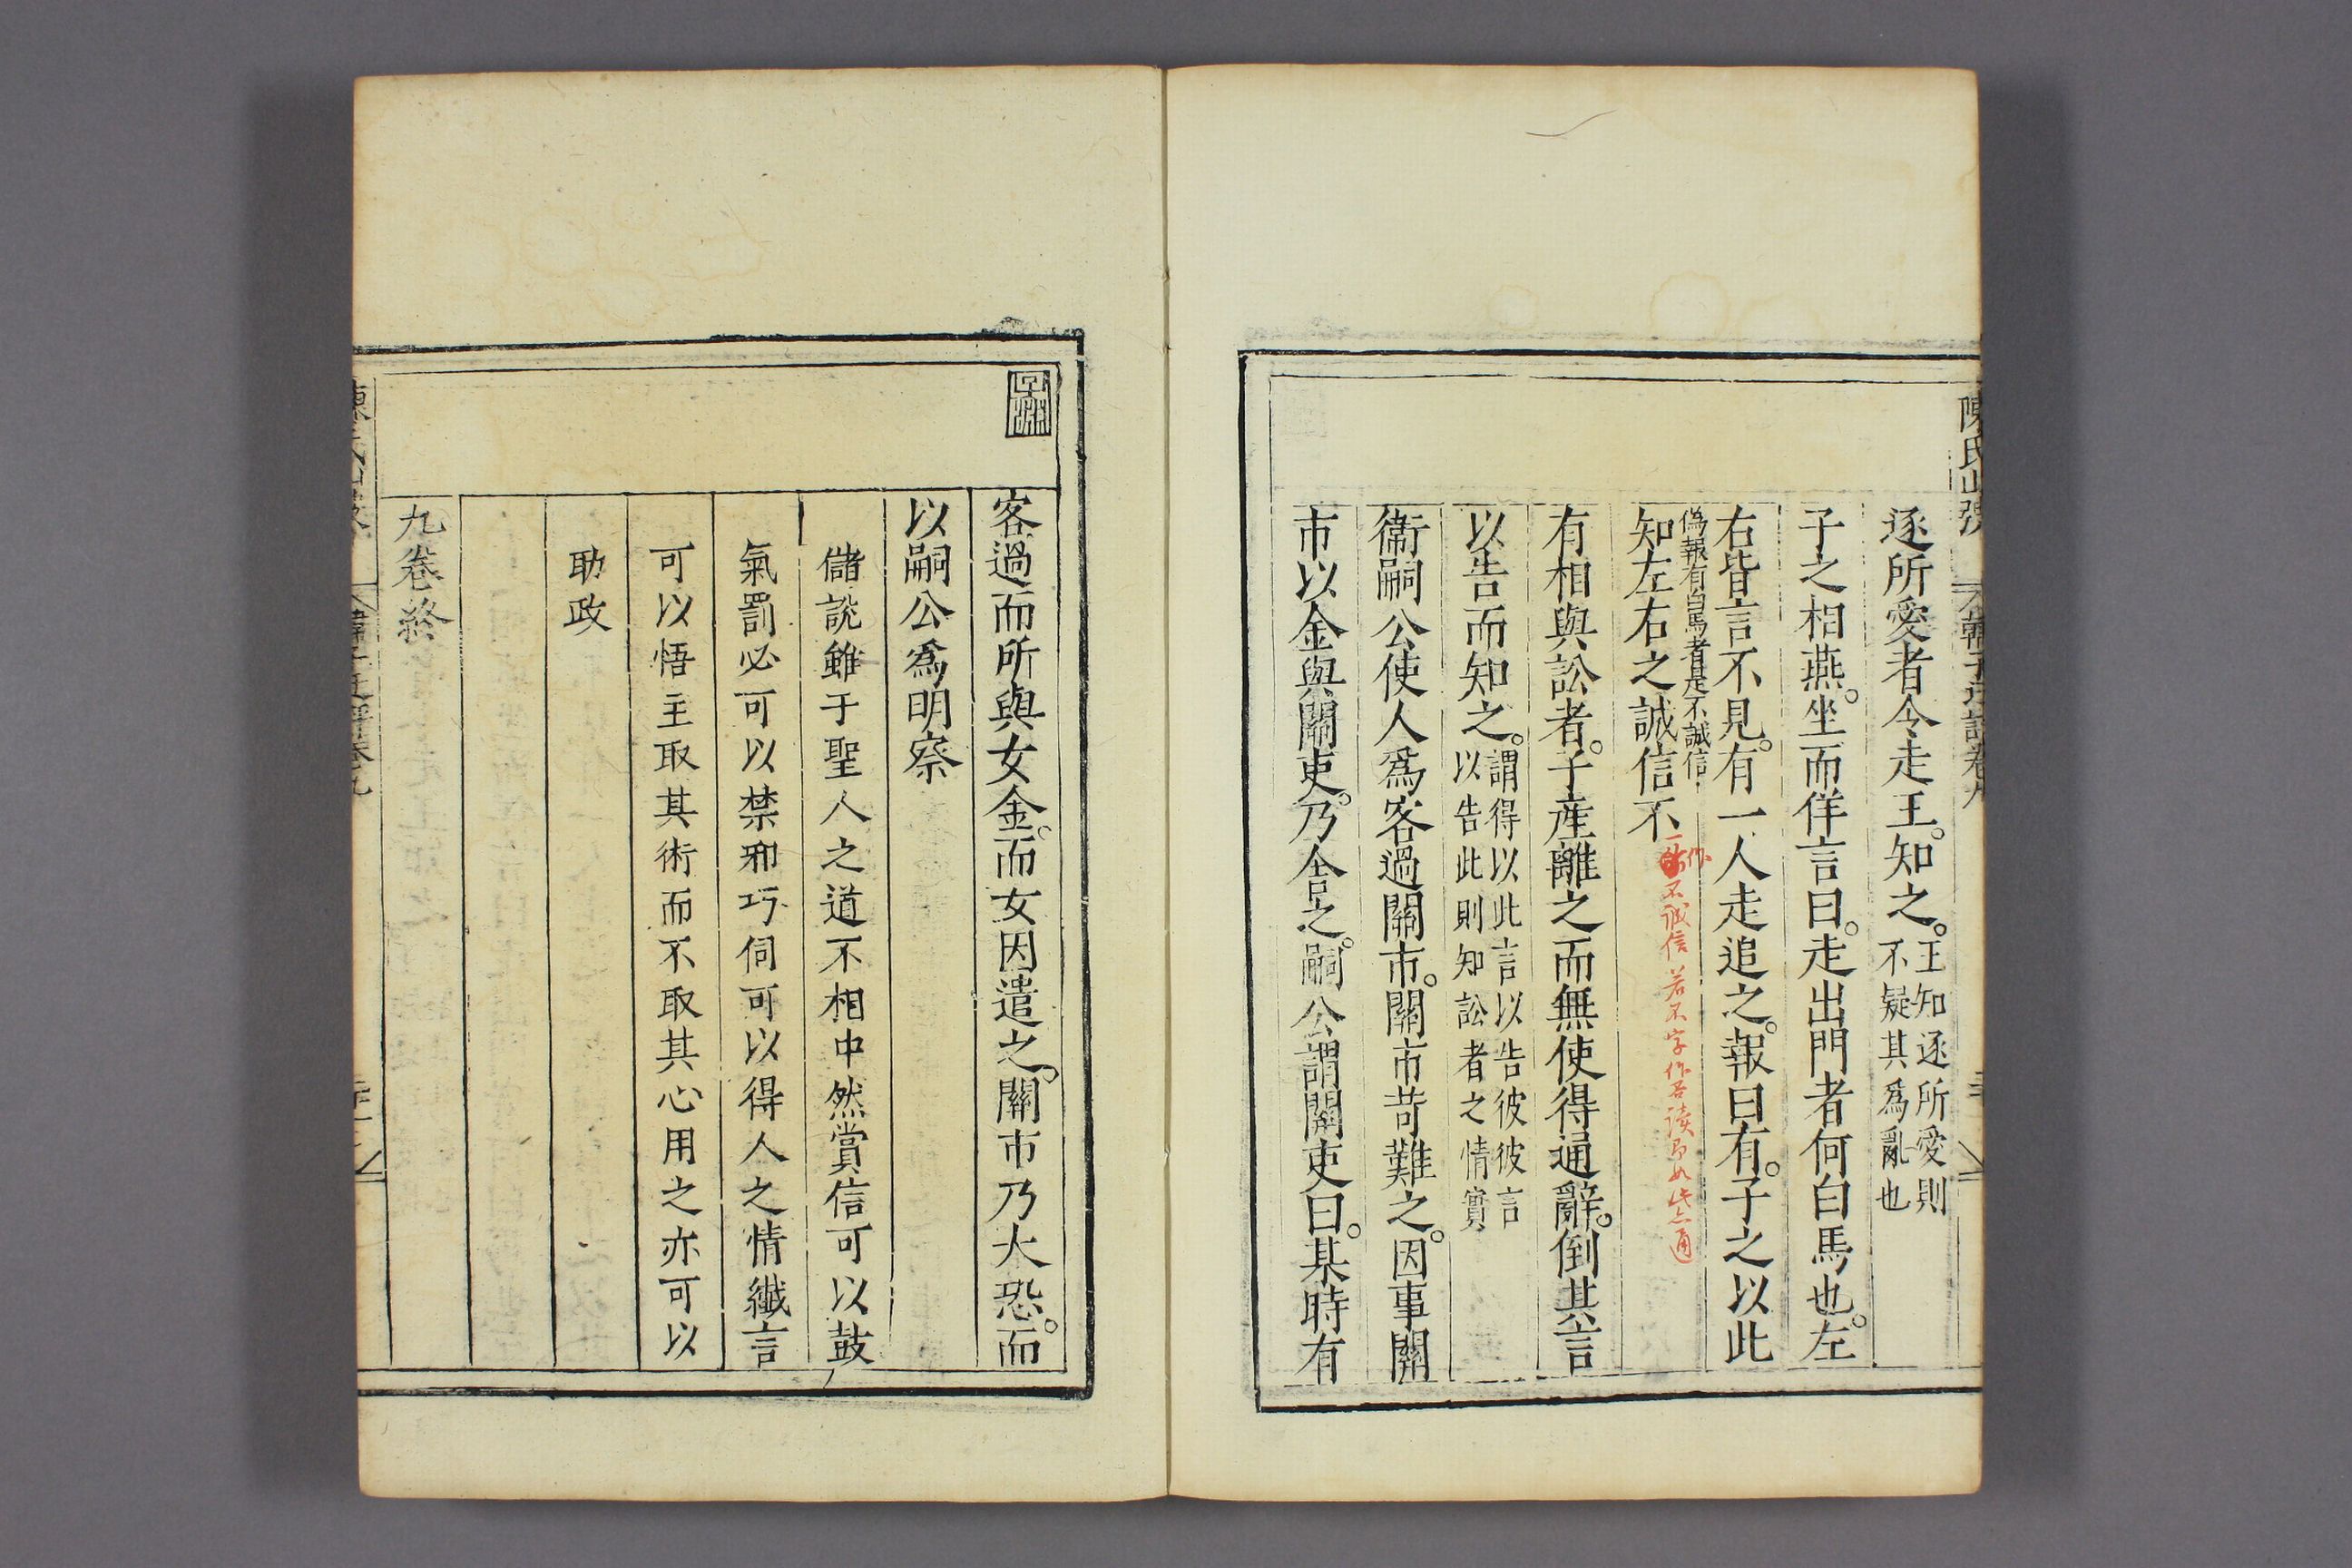 逐所愛者令走王。知之。王知逐所愛則不疑其爲亂也
子之相燕。坐而佯言曰。走出門者何白馬也。左
右皆言不見。有一人走追之。報曰有。子之以此
知左右之誠信不僞報有白馬者是不誠信
不誠信若不字作否讀
有相與訟者。子產離之而無使得通辭。倒其言
以告而知之。謂得以此言以告彼彼言以告此則知訟者之情實
衞嗣公使人爲客過關市。關市苛難之。因事關
市以金與關吏。乃舍之。嗣公謂關吏曰。某時有
客過而所與女金。而女因遣之。關市乃大恐。而
以嗣公爲明察
儲説雖于聖人之道不相中然賞信可以鼓
氣罰必可以禁邪巧伺可以得人之情纖言
可以悟主取其術而不取其心用之亦可以
助政
九卷終